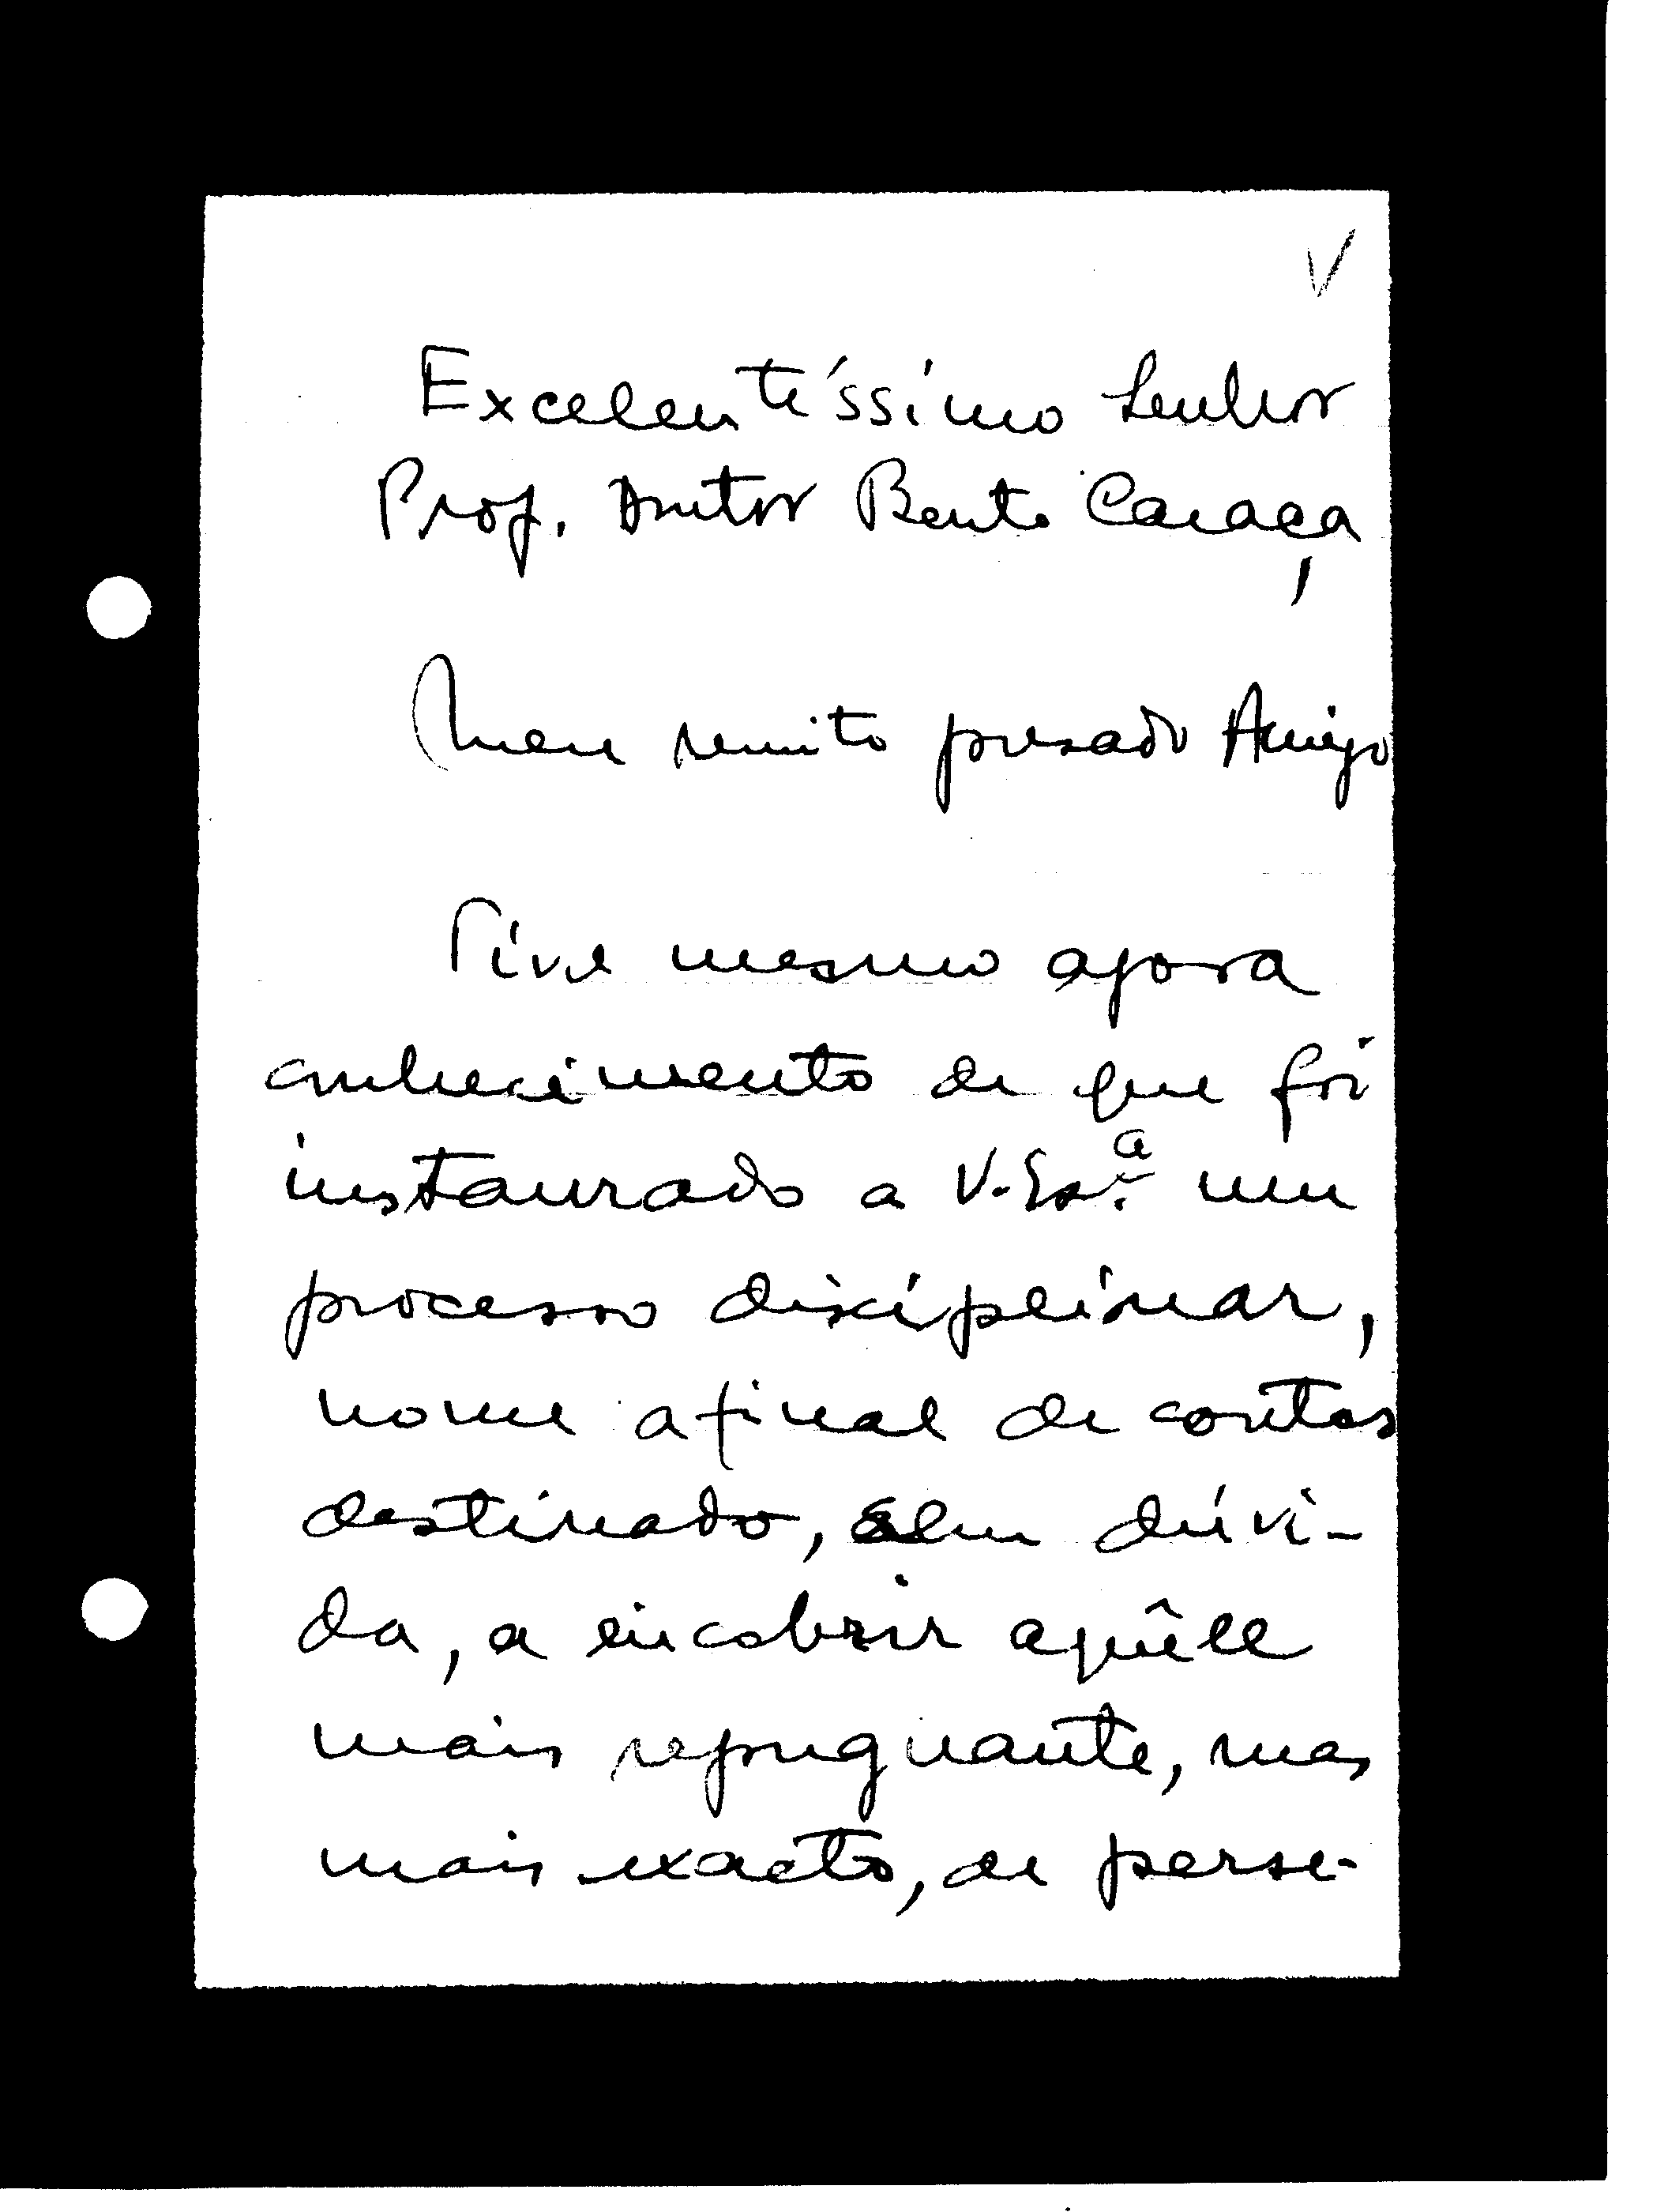 Excelentíssimo Senhor
Prof. Doutor Bento Caraça,
Meu muito presado Amigo
Tive mesmo agora
conhecimento de que foi
instaurado a V. Ex.ª um
processo disciplinar,
nome afinal de contas
destinado, sem dúvi-
da, a encobrir aquêle
mais repugnante, mas
mais exacto, de perse-